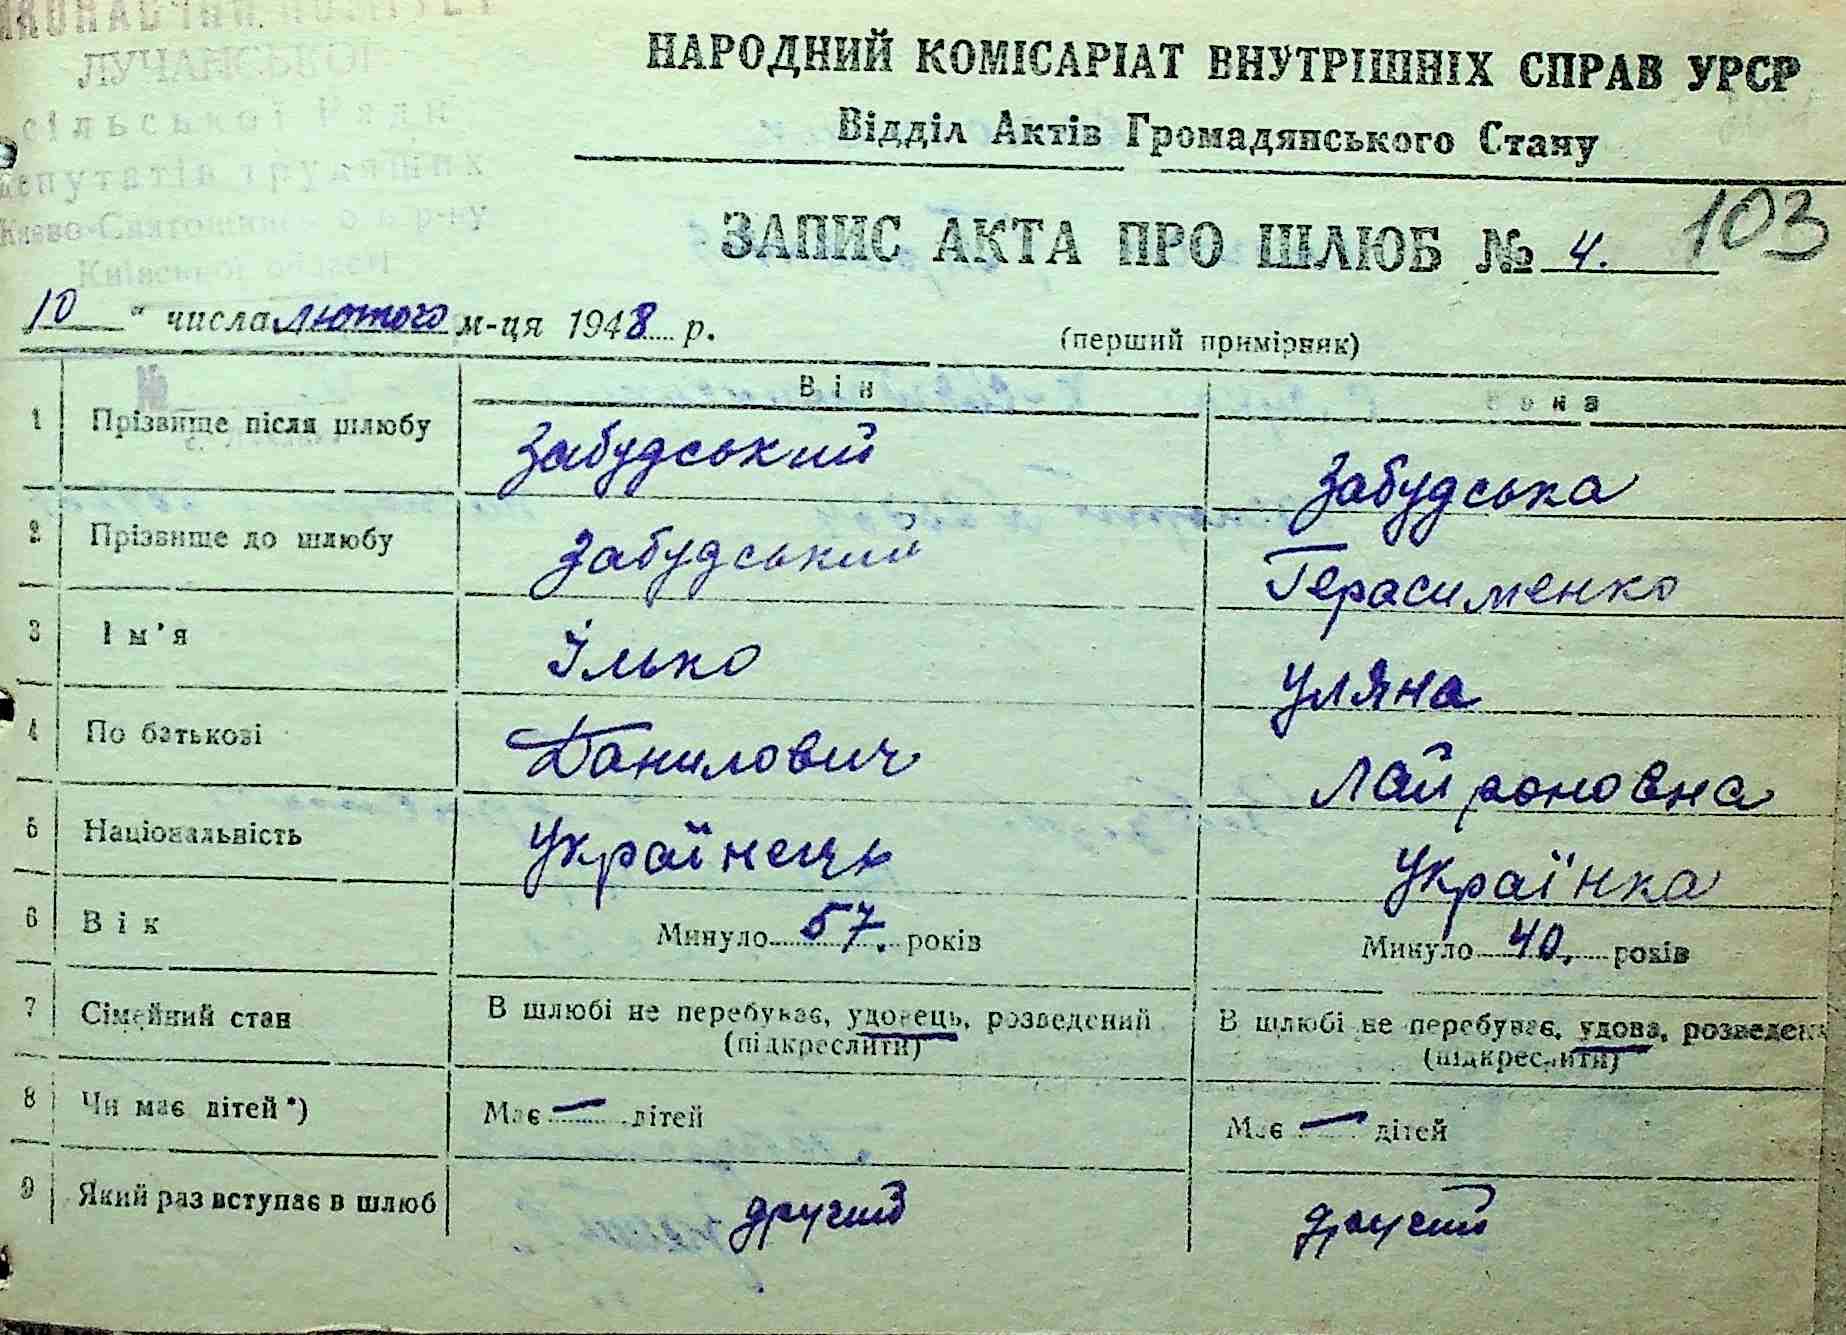 ВИКОНАВЧИЙ КОМІТЕТ
ЛУЧАНСЬКОЇ
сільської Ради
депутатів трудящих
Києво-Святошинського р-ну
Київської області
НАРОДНИЙ КОМІСАРІАТ ВНУТРІШНІХ СПРАВ УРСР
Відділ Актів Громадянського Стану
103
ЗАПИС АКТА ПРО ШЛЮБ № 4.
10 " числа лютого м-ця 1948 р.
(перший примірник)
Він Вона
1 Прізвище після шлюбу Забудський Забудська
2 Прізвище до шлюбу Забудський Герасименко
3 Ім'я Ілько Уляна
4 По батькові Данилович
5 Національність Українець Українка
6 Вік Минуло 57. років Минуло 40. років
7 Сімейний стан В шлюбі не перебуває, удовець, розведений В шлюбі не перебуває, удова, розведена
(підкреслити) (підкреслити)
8 Чи має дітей*) Має — дітей Має — дітей
9 Який раз вступає в шлюб другий другий